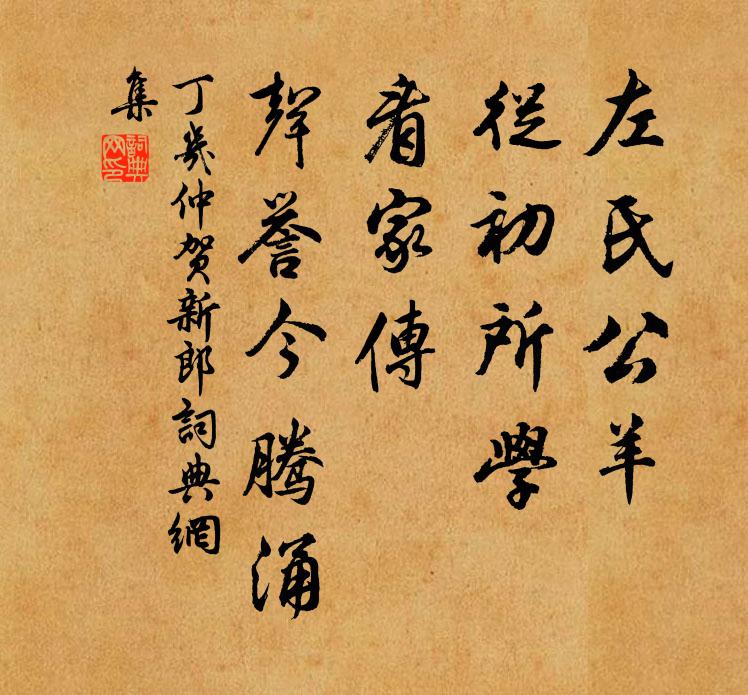 左氏公羊
從初所學
看家傳
聲譽今騰涌
丁幾仲賀新郎詞典網
集
詞典
網印